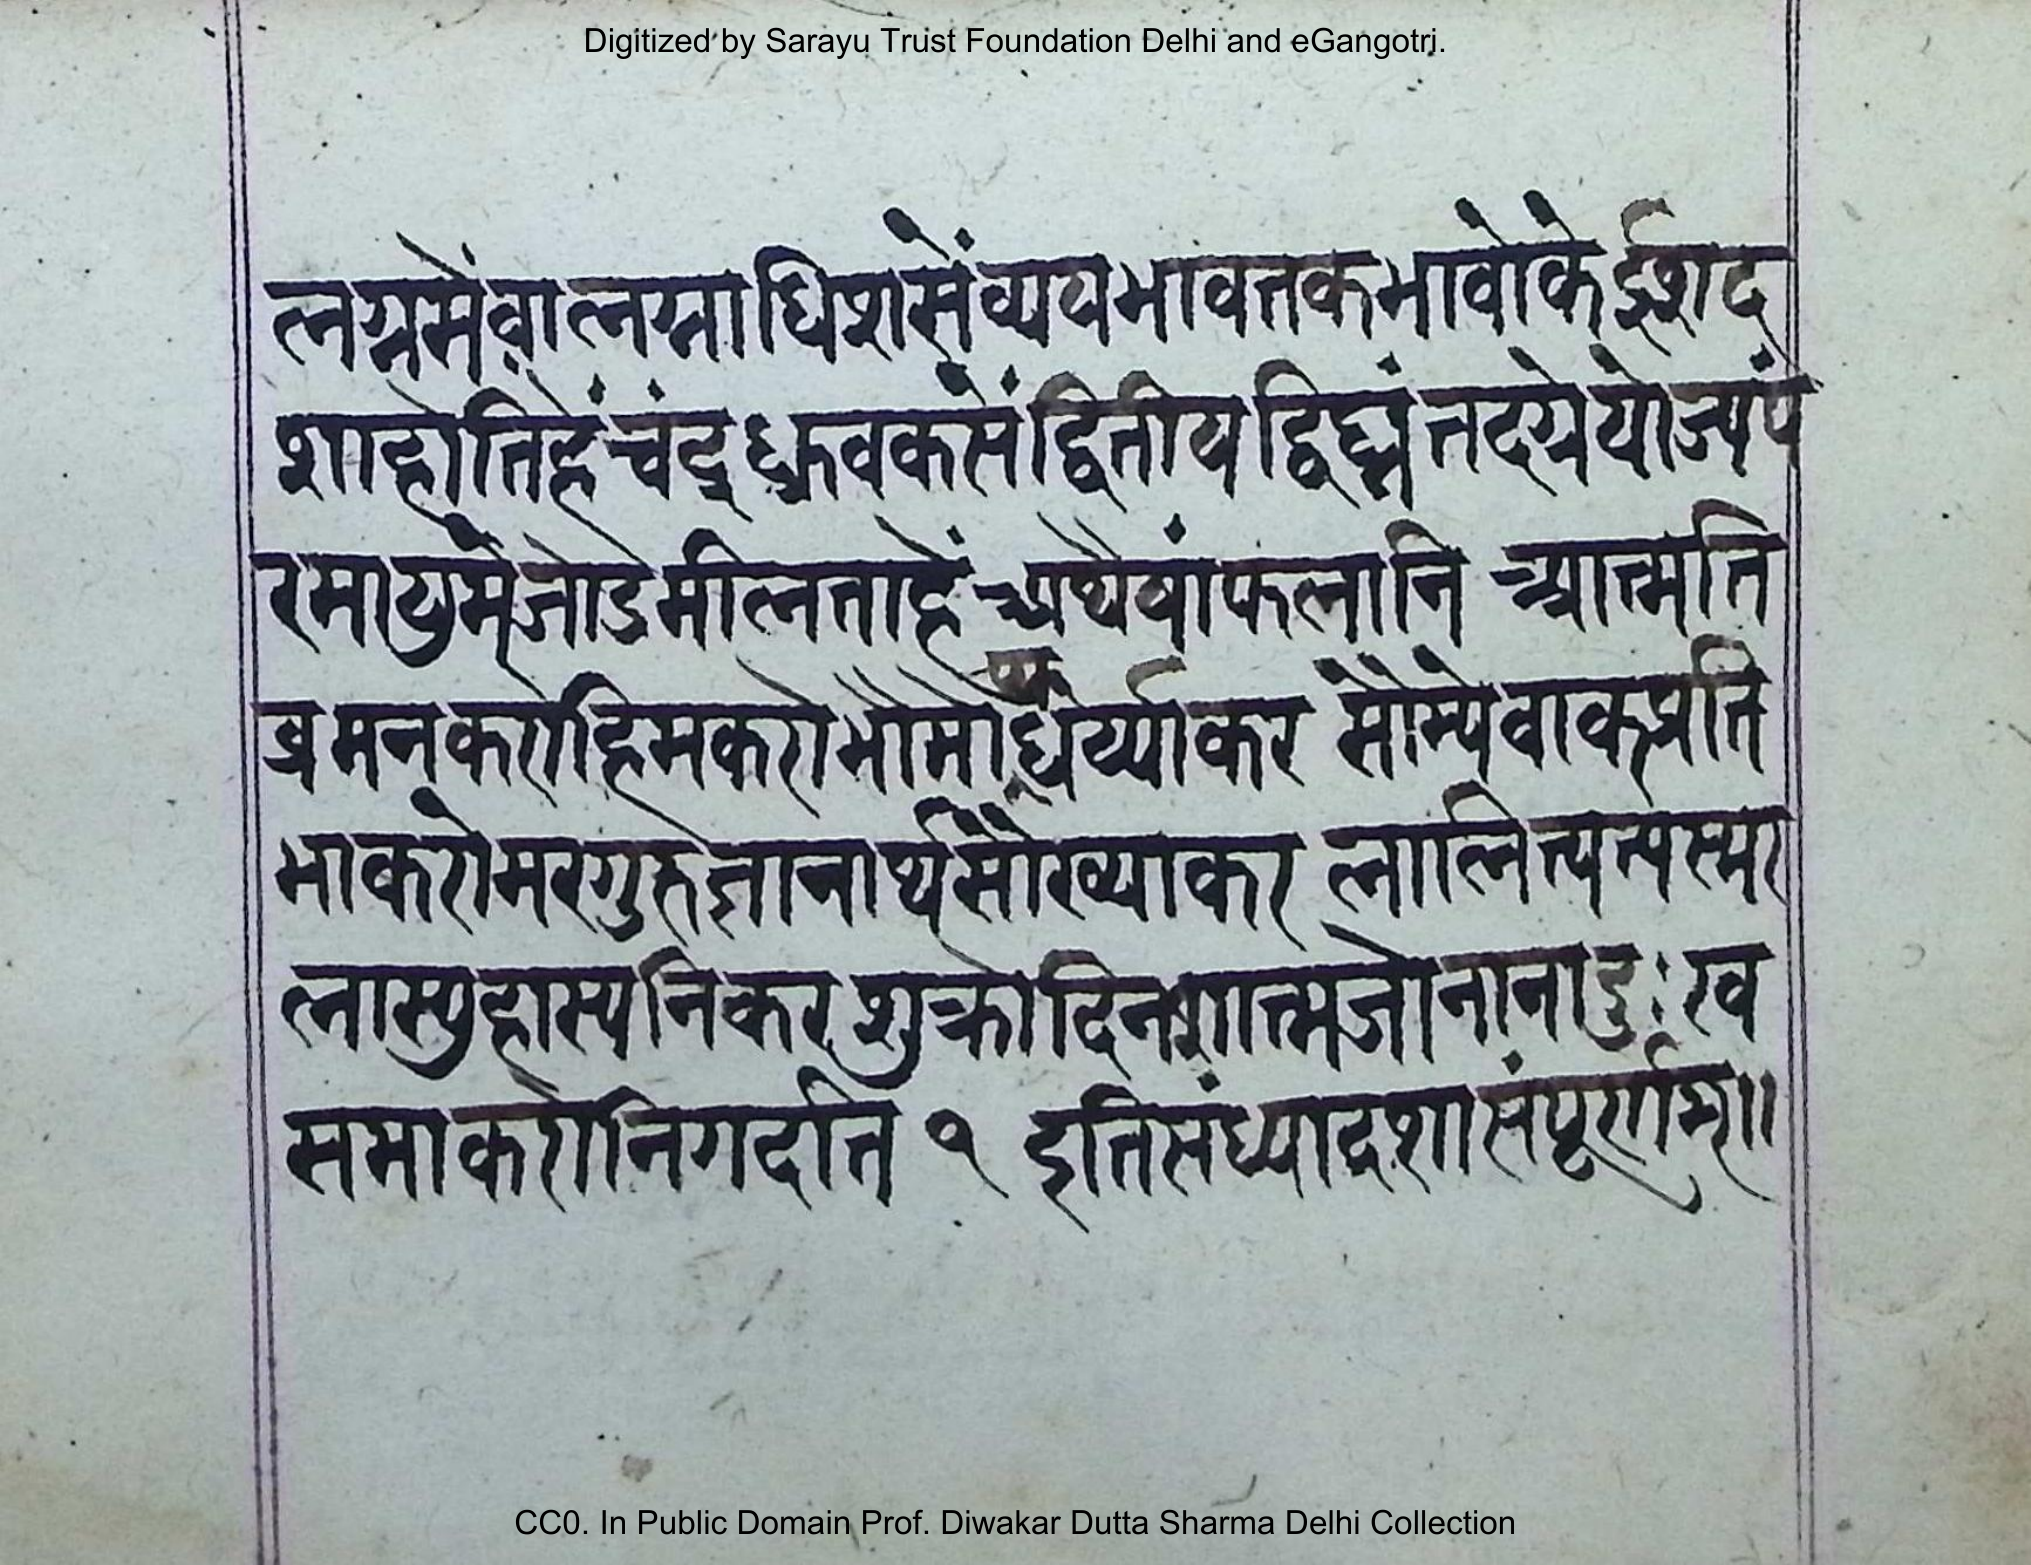 Digitized by Sarayu Trust Foundation Delhi and eGangotri.
लग्नमेंवालग्नाधिशसेंव्ययभावतकभावोकेईशद
शाहोतिहेंचंद्रध्रुवकसेंद्वितीयद्विघ्नंतदग्रेयोज्यंप
रमायुमेंजोडेमीलताहें अथैषांफलानि आत्मति
व्रमनकरोहिमकरोभौमोधैर्य्याकर सौम्येवाकप्रति
भाकरोमरगुरुज्ञानार्थसौख्याकर लालित्यत्यस्मर
लास्युहास्यनिकर शुक्रोदिनशात्मजोनानादुःख
समाकरोनिगदति १ इतिसंध्यादशासंपूर्णाम्॥
CC0. In Public Domain Prof. Diwakar Dutta Sharma Delhi Collection